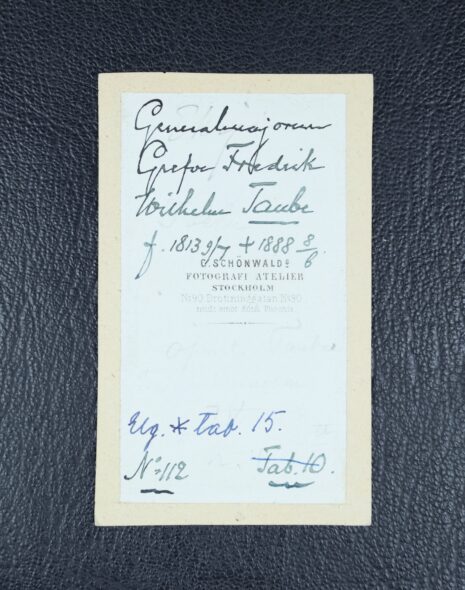 Generalmajoren
Grefve Fredrik
Wilhelm Taube
f. 1813 9/7 + 1888 8/6.
C. SCHÖNWALDS
FOTOGRAFI ATELIER
STOCKHOLM
No 90 Drottninggatan No 90
Elg. * tab. 15.
No 112 Tab. 10.